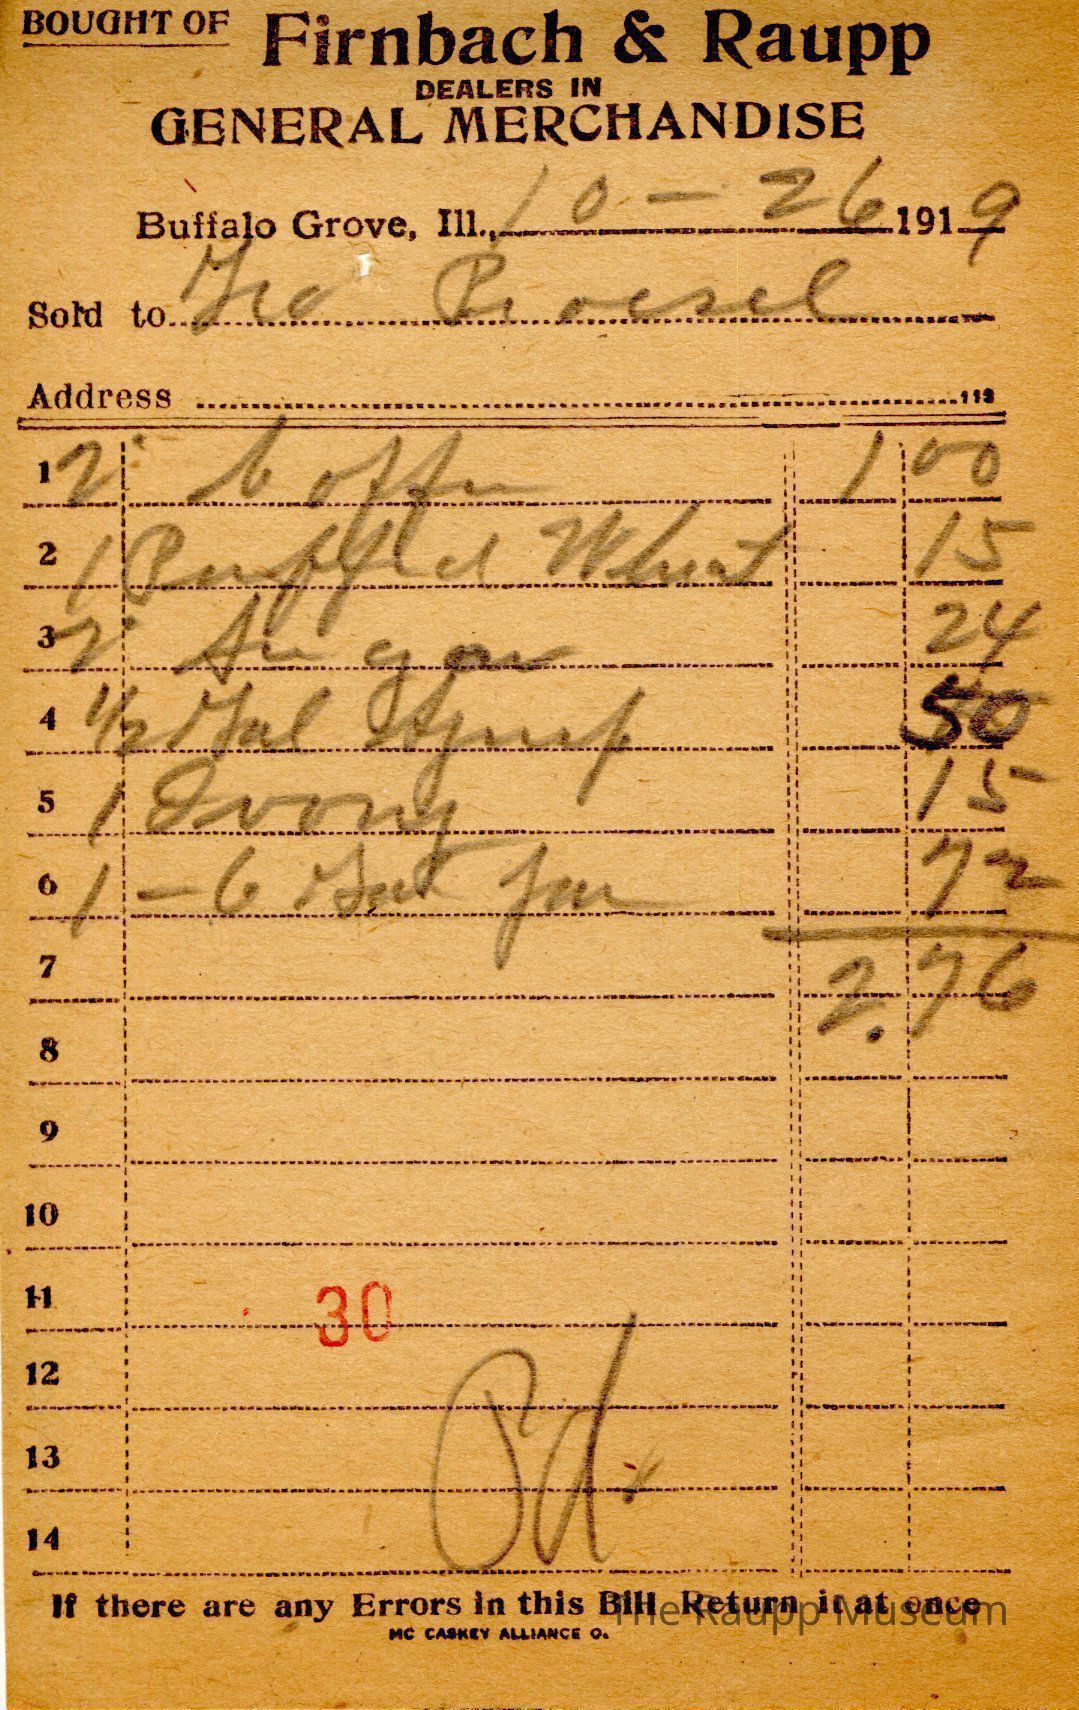 BOUGHT OF Firnbach & Raupp
DEALERS IN
GENERAL MERCHANDISE
Buffalo Grove, Ill., 10-26 1919
Sold to Geo
Address 113
1 2 Coffee 1 00
2 1 Puffed Wheat 15
3 2 24
4 1/2 Gal Syrup 50
5 1 Ivory 15
6 1 - 6 Gal Jar 72
7 2.76
8
9
10
11 30
12
13 Pd
14
If there are any Errors in this Bill Return it at once
The Raupp Museum
MC CASKEY ALLIANCE O.